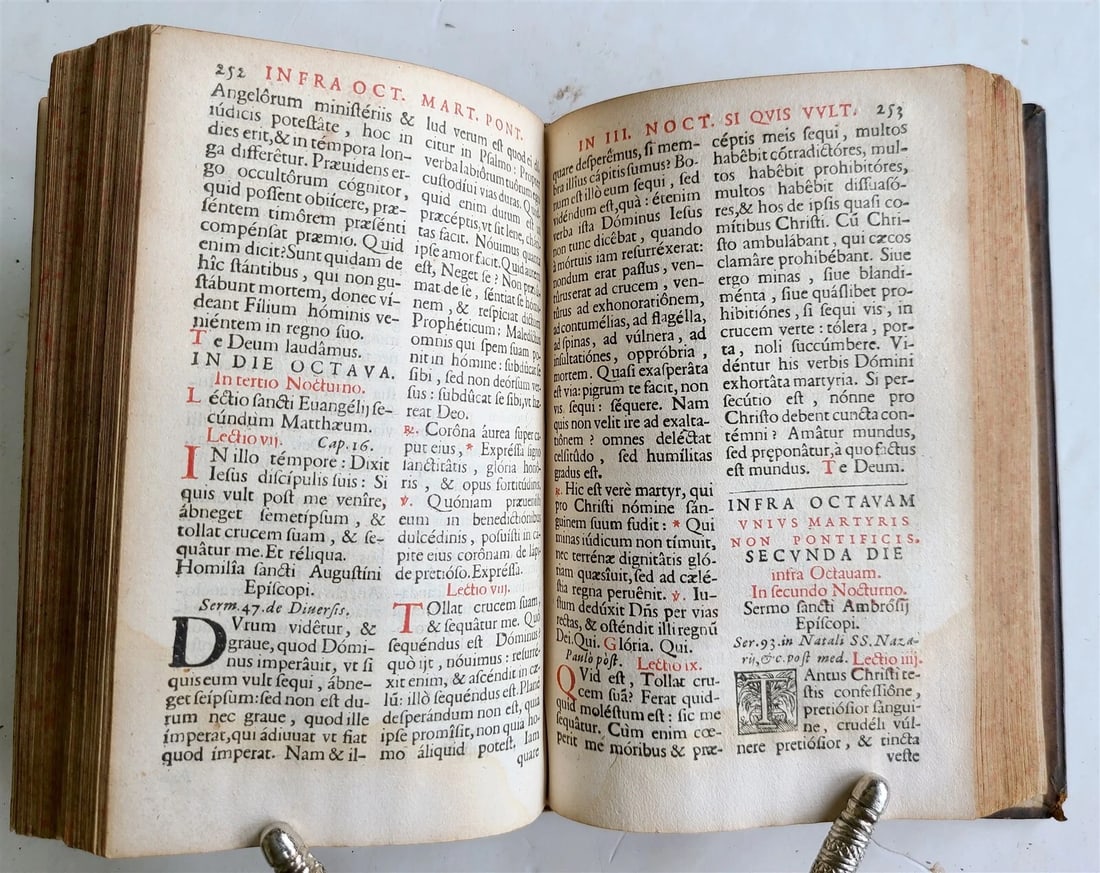 252 INFRA OCT. MART. PONT.
Angelôrum miniſtériis &
iúdicis poteſtâte, hoc in
dies erit, & in témpora lon-
ga differêtur. Præuidens er-
go occultórum cógnitor,
quid poſſent obiícere, præ-
ſéntem timôrem præſénti
compénſat præmio. Quid
enim dicit? Sunt quidam de
hîc ſtántibus, qui non gu-
ſtábunt mortem, donec ví-
deant Fílium hóminis ve-
niéntem in regno ſuo.
Te Deum laudâmus.
IN DIE OCTAVA.
In tertio Nocturno.
Léctio ſancti Euangélij ſe-
cúndum Matthæum.
Lectio vij. Cap. 16.
IN illo témpore: Dixit
Ieſus diſcípulis ſuis: Si
quis vult poſt me venîre,
ábneget ſemetípſum, &
tollat crucem ſuam, & ſe-
quâtur me. Et réliqua.
Homilîa ſancti Auguſtíni
Epíſcopi.
Serm. 47. de Diuerſis.
DVrum vidêtur, &
graue, quod Dómi-
nus imperâuit, vt ſi
quis eum vult ſequi, ábne-
get ſeípſum: ſed non eſt du-
rum nec graue, quod ille
ímperat, qui ádiuuat vt fiat
quod ímperat. Nam & il-
lud verum eſt quod ei
citur in Pſalmo: Propter
verba labiôrum tuôrum ego
cuſtodíui vias duras. Quid-
quid enim durum eſt in
præcéptis, vt ſit lene, chári-
tas facit. Nóuimus quanta
ipſe amor facit. Quid autem
eſt, Neget ſe? Non præſû-
mat de ſe, ſéntiat ſe hómi-
nem, & reſpíciat dictum
Prophéticum: Maledíctus
omnis qui ſpem ſuam po-
nit in hómine: ſubdûcat ſe
ſibi, ſed non deórſum ver-
ſus: ſubdûcat ſe ſibi, vt hæ-
reat Deo.
℟. Corôna áurea ſuper ca-
put eius, * Expréſſa ſigno
ſanctitâtis, glória honô-
ris, & opus fortitúdinis.
℣. Quóniam præueníſti
eum in benedictiónibus
dulcédinis, poſuíſti in cá-
pite eius corônam de lápi-
de pretióſo. Expréſſa.
Lectio viij.
TOllat crucem ſuam,
& ſequâtur me. Quò
ſequéndus eſt Dóminus?
quò ijt, nóuimus: reſurré-
xit enim, & aſcéndit in cæ-
lũ: illò ſequéndus eſt. Planè
deſperándum non eſt, quia
ipſe promíſit, non quia ho-
mo áliquid poteſt. Iam
quare
IN III. NOCT. SI QVIS VVLT. 253
quare deſperêmus, ſi mem-
bra illíus cápitis ſumus? Bo-
num eſt illò eum ſequi, ſed
vidéndum eſt, quà: étenim
verba iſta Dóminus Ieſus
non tunc dicêbat, quando
à mórtuis iam reſurréxerat:
nondum erat paſſus, ven-
tûrus erat ad crucem, ven-
tûrus ad exhonoratiônem,
ad contumélias, ad flagélla,
ad ſpinas, ad vúlnera, ad
inſultatiónes, oppróbria,
mortem. Quaſi exaſperâta
eſt via: pigrum te facit, non
vis ſequi: ſéquere. Nam
quis non velit ire ad exalta-
tiônem? omnes deléctat
celſitûdo, ſed humílitas
gradus eſt.
℟. Hic eſt verè martyr, qui
pro Chriſti nómine ſán-
guinem ſuum fudit: * Qui
minas iúdicum non tímuit,
nec terrénæ dignitâtis gló-
riam quæſîuit, ſed ad cælé-
ſtia regna peruênit. ℣. Iu-
ſtum dedúxit Dñs per vias
rectas, & oſténdit illi regnũ
Dei. Qui. Glória. Qui.
Paulò pòſt. Lectio ix.
QVid eſt, Tollat cru-
cem ſuã? Ferat quid-
quid moléſtum eſt: ſic me
ſequâtur. Cùm enim cœ-
perit me móribus & præ-
céptis meis ſequi, multos
habêbit cõtradictóres, mul-
tos habêbit prohibitóres,
multos habêbit diſſuaſó-
res, & hos de ipſis quaſi co-
mítibus Chriſti. Cũ Chri-
ſto ambulábant, qui cæcos
clamâre prohibébant. Siue
ergo minas, ſiue blandi-
ménta, ſiue quáſlibet pro-
hibitiónes, ſi ſequi vis, in
crucem verte: tólera, por-
ta, noli ſuccúmbere. Vi-
déntur his verbis Dómini
exhortâta martyria. Si per-
ſecútio eſt, nónne pro
Chriſto debent cuncta con-
témni? Amâtur mundus,
ſed præponâtur, à quo factus
eſt mundus. Te Deum.
INFRA OCTAVAM
VNIVS MARTYRIS
NON PONTIFICIS.
SECVNDA DIE
infra Octauam.
In ſecundo Nocturno.
Sermo ſancti Ambróſij
Epíſcopi.
Ser. 93. in Natali SS. Naza-
rij, &c. poſt med. Lectio iiij.
IAntus Chriſti te-
ſtis confeſſióne,
pretióſior ſángui-
ne, crudéli vúl-
nere pretióſior, & tincta
veſte